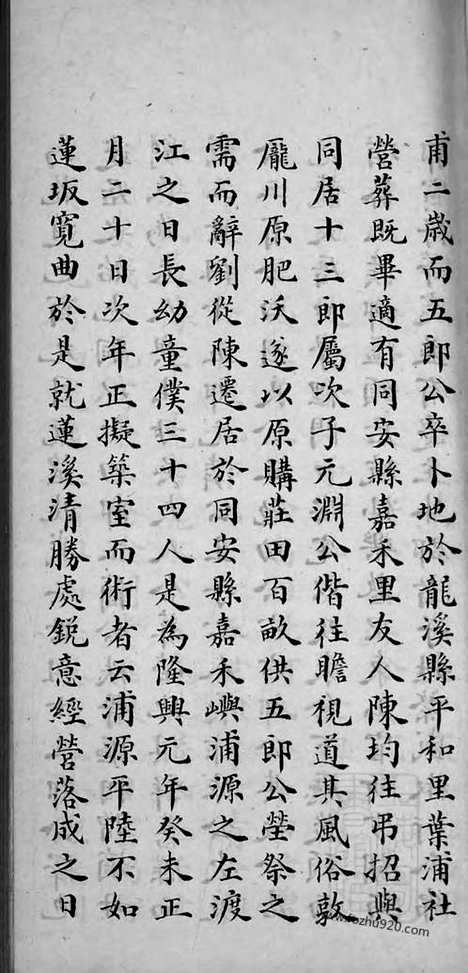 甫二歲而五郎公卒卜地於龍溪縣平和里葉浦社
營葬既畢適有同安縣嘉禾里友人陳均往弔招與
同居十三郎屬次子元淵公偕往瞻視道其風俗敦
龐川原肥沃遂以原購莊田百畝供五郎公塋祭之
需而辭劉從陳遷居於同安縣嘉禾嶼浦源之左渡
江之日長幼童僕三十四人是為隆興元年癸未正
月二十日次年正擬築室而術者云浦源平陸不如
蓮坂寬曲於是就蓮溪清勝處銳意經營落成之日
www.fozhu920.com